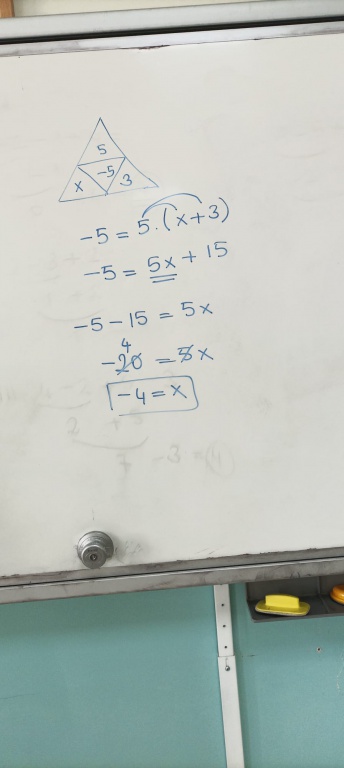 5
x -5 3
-5 = 5.(x+3)
-5 = 5x + 15
-5-15 = 5x
4
-20 = 5x
-4 = x